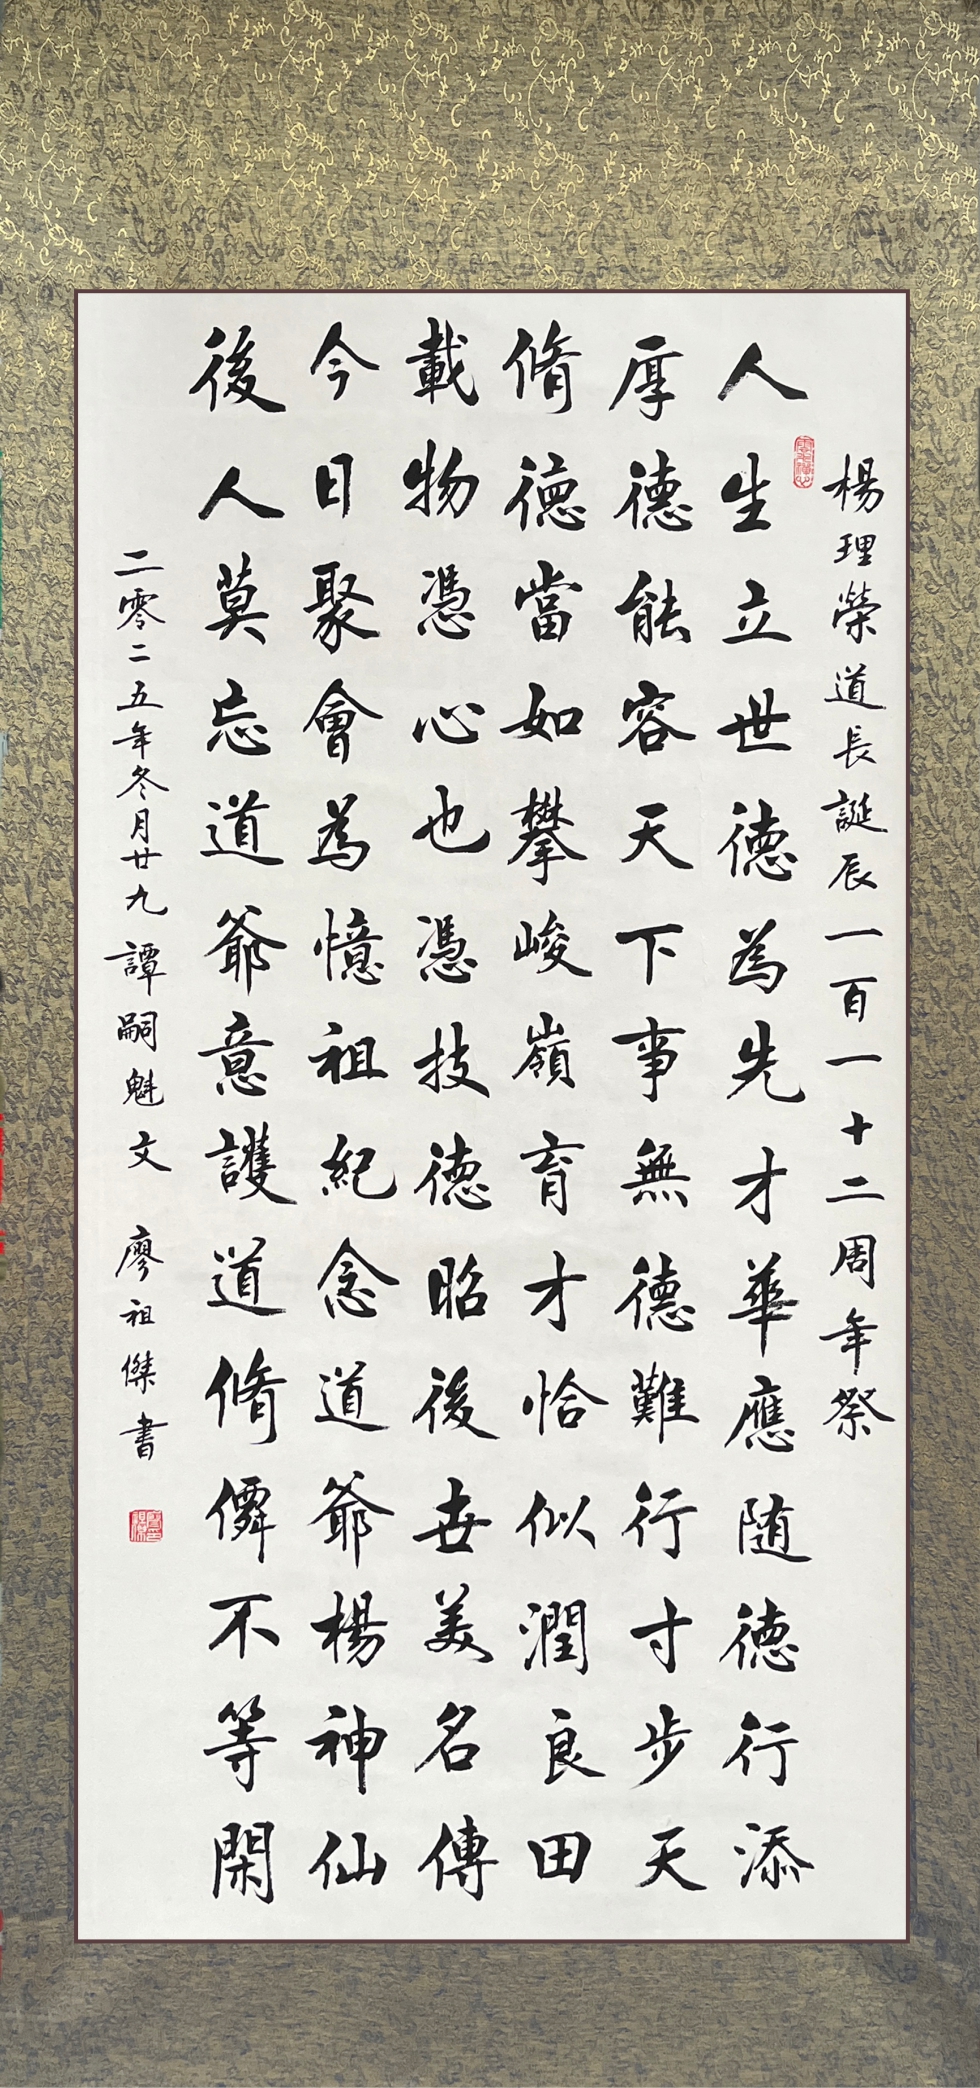 楊理榮道長誕辰一百一十二周年祭
人生立世德為先才華應随德行添
厚德能容天下事無德難行寸步天
脩德當如攀峻嶺育才恰似潤良田
載物憑心也憑技德昭後世美名傳
今日聚會為憶祖紀念道爺楊神仙
後人莫忘道爺意護道脩僊不等閑
二零二五年冬月廿九譚嗣魁文 廖祖傑書